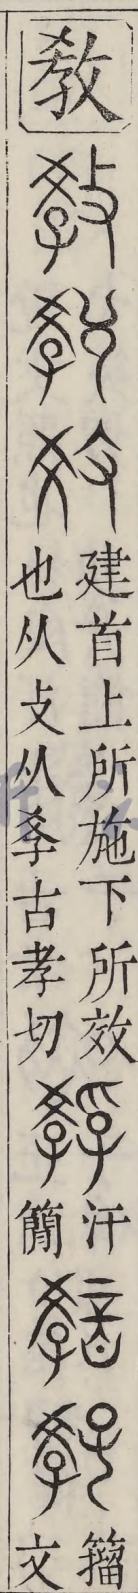 教
建首上所施下所效
也从攴从孝古孝切
汗
簡
籀
文